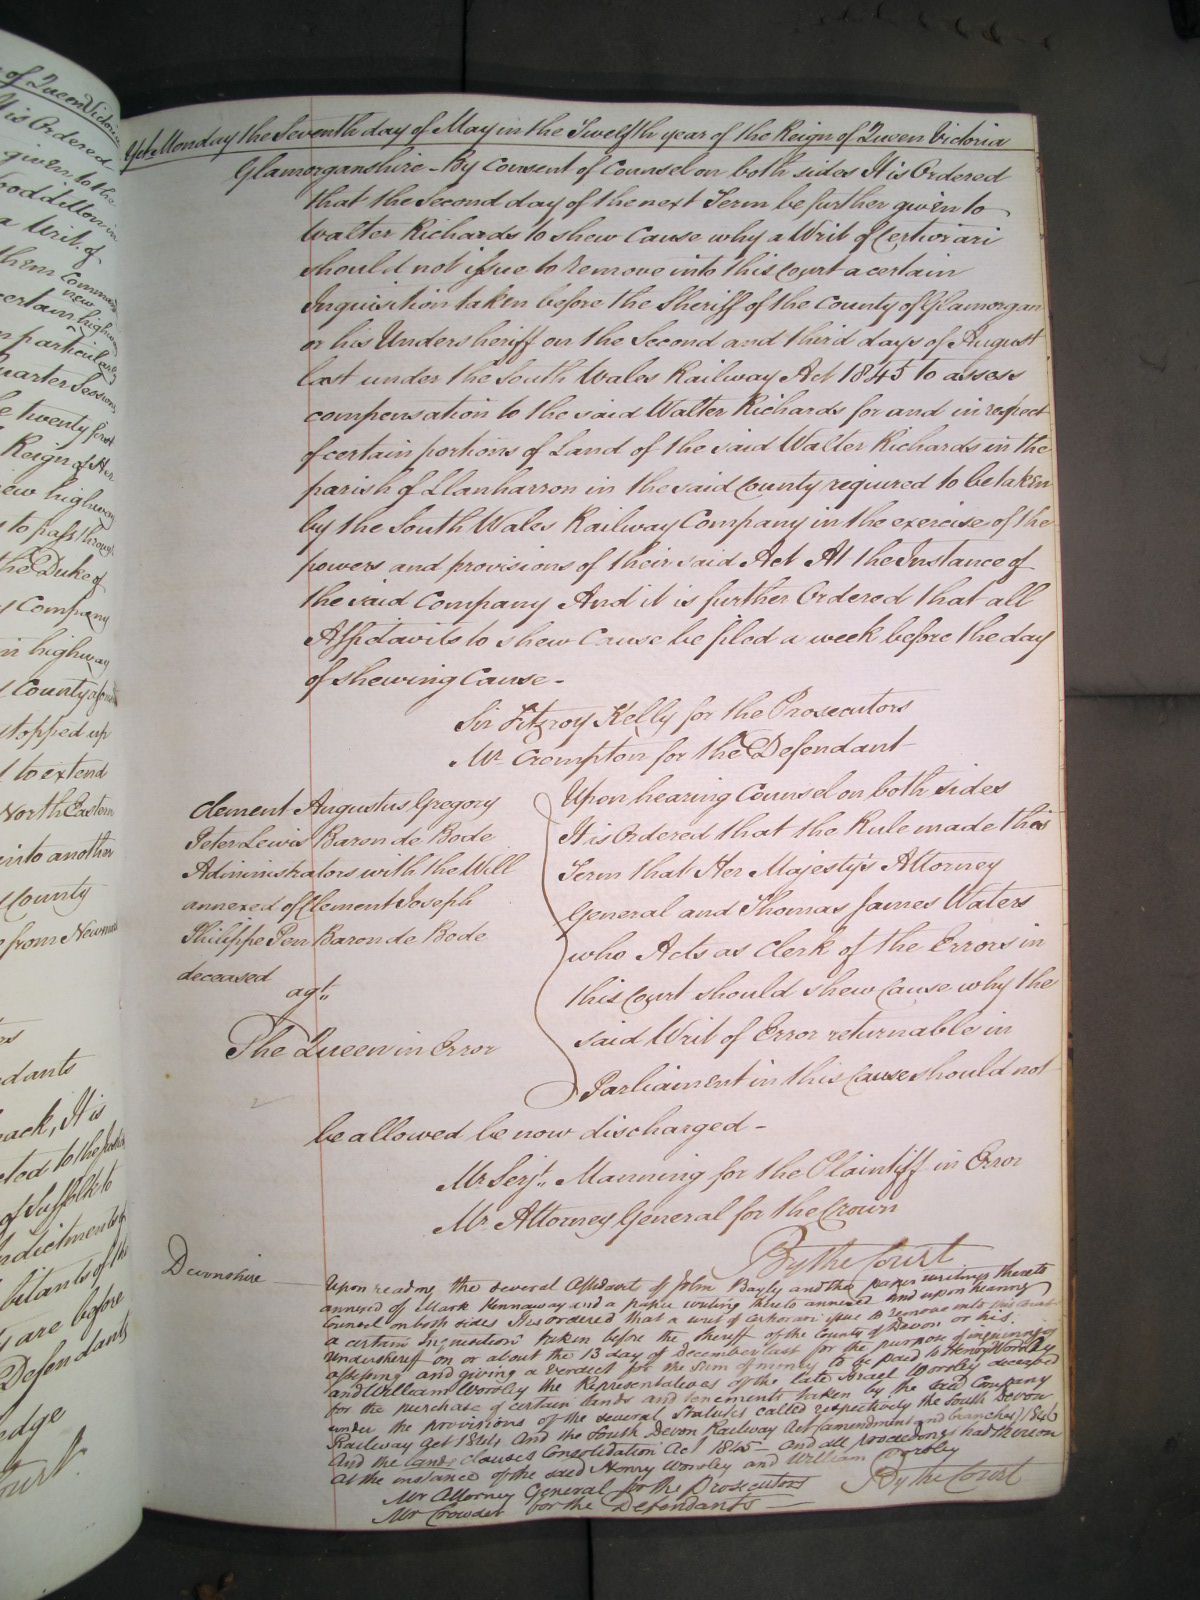 of Queen Victoria
It is Ordered
given to the
a Writ of
them
new
certain highway
particularly
Quarter Sessions
twenty first
Reign of Her
new highway
to pass through
the Duke of
Company
highway
County
stopped up
to extend
North Eastern
into another
County
from
dants
It is
of Suffolk to
Indictment
bitants of the
are before
Defendants
Court
Yet Monday the Seventh day of May in the Twelfth year of the Reign of Queen Victoria
Glamorganshire - By Consent of Counsel on both sides It is Ordered
that the Second day of the next Term be further given to
Walter Richards to shew Cause why a Writ of Certiorari
should not issue to remove into this Court a certain
Inquisition taken before the Sheriff of the County of Glamorgan
or his Undersheriff on the Second and third days of August
last under the South Wales Railway Act 1845 to assess
compensation to the said Walter Richards for and in respect
of certain portions of Land of the said Walter Richards in the
parish of Llanharron in the said County required to be taken
by the South Wales Railway Company in the exercise of the
powers and provisions of their said Act At the Instance of
the said Company And it is further Ordered that all
Affidavits to shew Cause be filed a week before the day
of shewing Cause -
Sir Fitzroy Kelly for the Prosecutors
Mr Crompton for the Defendant
Clement Augustus Gregory
Peter Lewis Baron de Bode
Administrators with the Will
annexed of Clement Joseph
Philippe Pen Baron de Bode
deceased
agt.
The Queen in Error
Upon hearing Counsel on both sides
It is Ordered that the Rule made this
Term that Her Majesty's Attorney
General and Thomas James Waters
who Acts as Clerk of the Errors in
this Court should shew Cause why the
said Writ of Error returnable in
Parliament in this Cause should not
be allowed be now discharged -
Mr Serjt. Manning for the Plaintiff in Error
Mr Attorney General for the Crown
By the Court
Devonshire
Upon reading the several Affidavit of John Bayly and the paper writings thereto
annexed of Mark Kennaway and a paper writing thereto annexed and upon hearing
Council on both sides It is ordered that a writ of certiorari issue to remove into this court
a certain Inquisition taken before the Sheriff of the County of Devon or his
Undersheriff on or about the 13 day of December last for the purpose of inquiring of
assessing and giving a verdict for the sum of money to be paid to Henry Worsley
and William Worsley the Representatives of the late Israel Worsley deceased
for the purchase of certain lands and tenements taken by the said Company
under the provisions of the several Statutes called respectively the South Devon
Railway Act 1844 And the South Devon Railway Act (amendment and branches) 1846
And the lands Clauses Consolidation Act 1845 - and all proceedings had thereon
At the instance of the said Henry Worsley and William Worsley
Mr Attorney General for the Prosecutors
Mr Crowder for the Defendants
By the Court